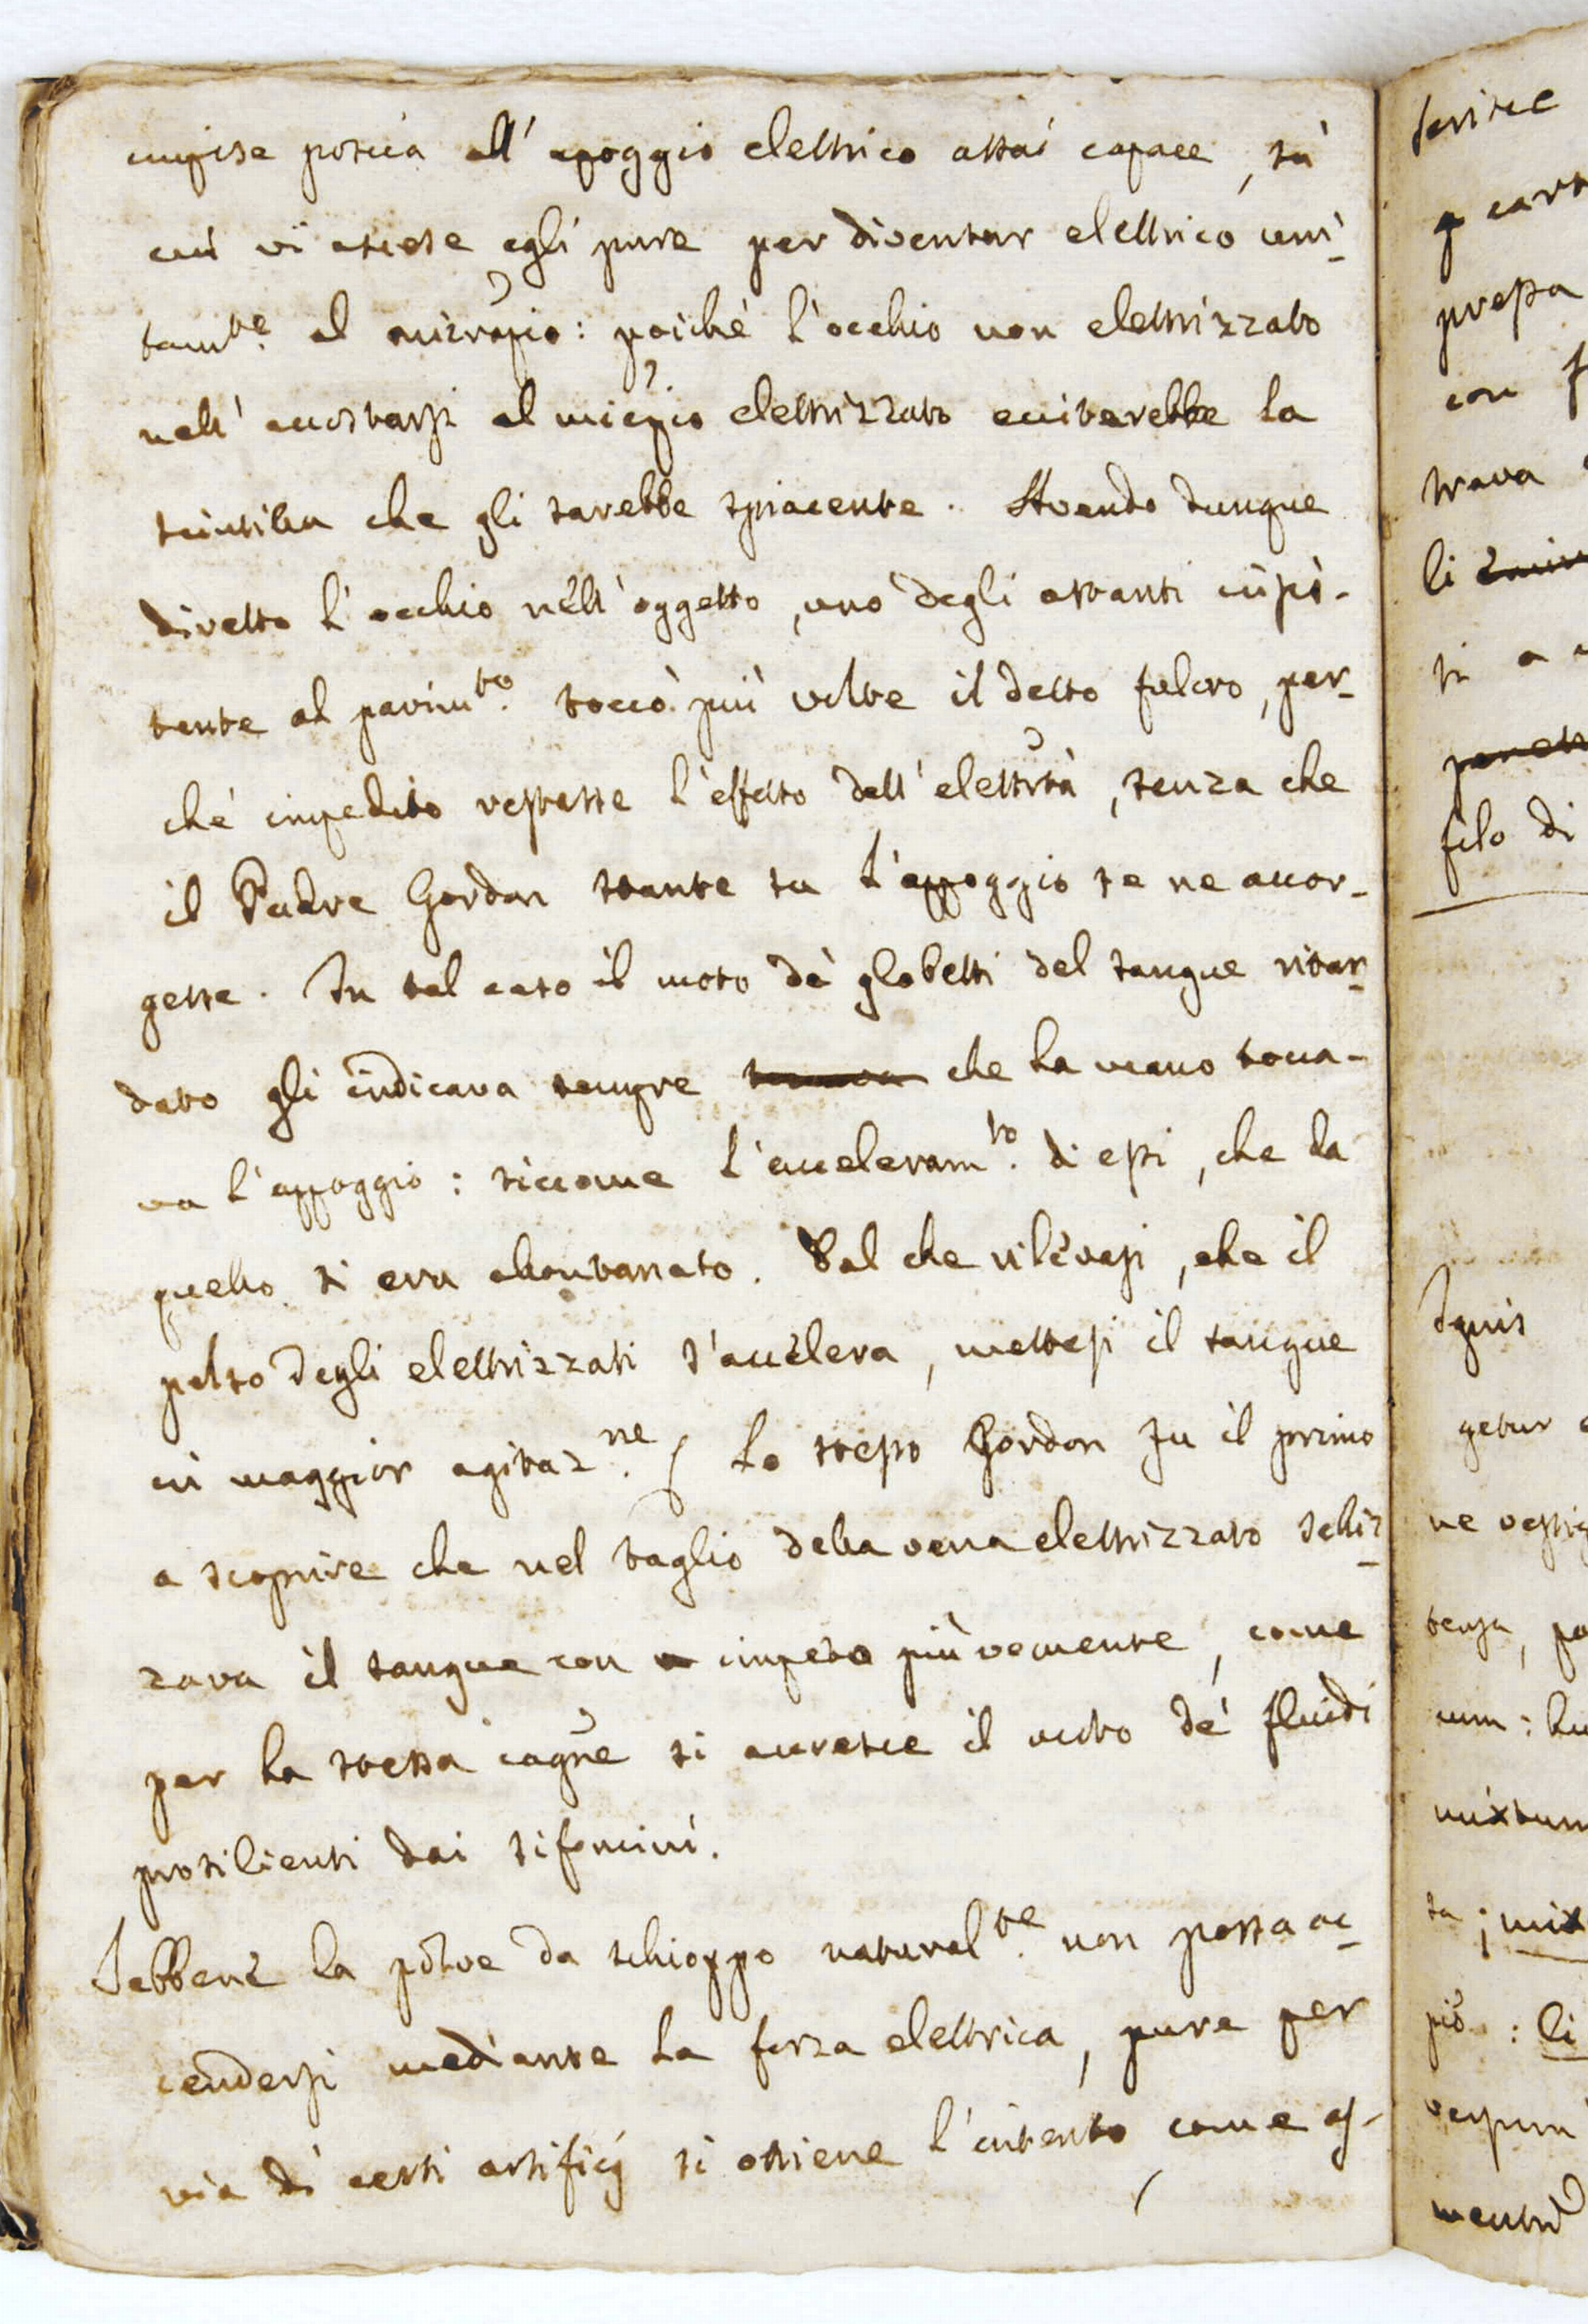 impose poscia all' apoggio elettrico assai capace, sù
cui vi ascese egli pure per diventar elettrico uni-
tam.te al micropio: poiché l'occhio non elettrizzato
nell' accostarsi al micpio elettrizzato ecciterebbe la
scintilla che gli sarebbe spiacente. Avendo dunque
diretto l'occhio nell' oggetto, uno degli astanti insi-
stente al pavim.to toccò più volte il detto fulcro, per-
ché impedito restasse l'effetto dell' elettrtà, senza che
il Padre Gordon stante su l'appoggio se ne accor-
gesse. In tal caso il moto dè globetti del sangue ritar-
dato gli indicava sempre che la mano tocca-
va l'appoggio: siccome l'acceleram.to di essi, che da
quello si era allontanato. Dal che rilevasi, che il
polso degli elettrizzati s'accelera, mettesi il sangue
in maggior agitaz.ne Lo stesso Gordon fu il primo
a scoprire che nel taglio della vena elettrizzato schiz-
zava il sangue con impeto più vemente, come
per la stessa cagne si accresce il moto de' fluidi
prosilienti dai sifoncini.
Sebbene la polve da schioppo natural.te non possa ac-
cendersi mediante la forza elettrica, pure per
via di certi artificj si ottiene l'intento come as-
ferisce
pressa
con
trava
li
si a
filo di
Ignis
getur
ne vestig
tensa, po
um: hu
mixtum
ta; mix
più: li